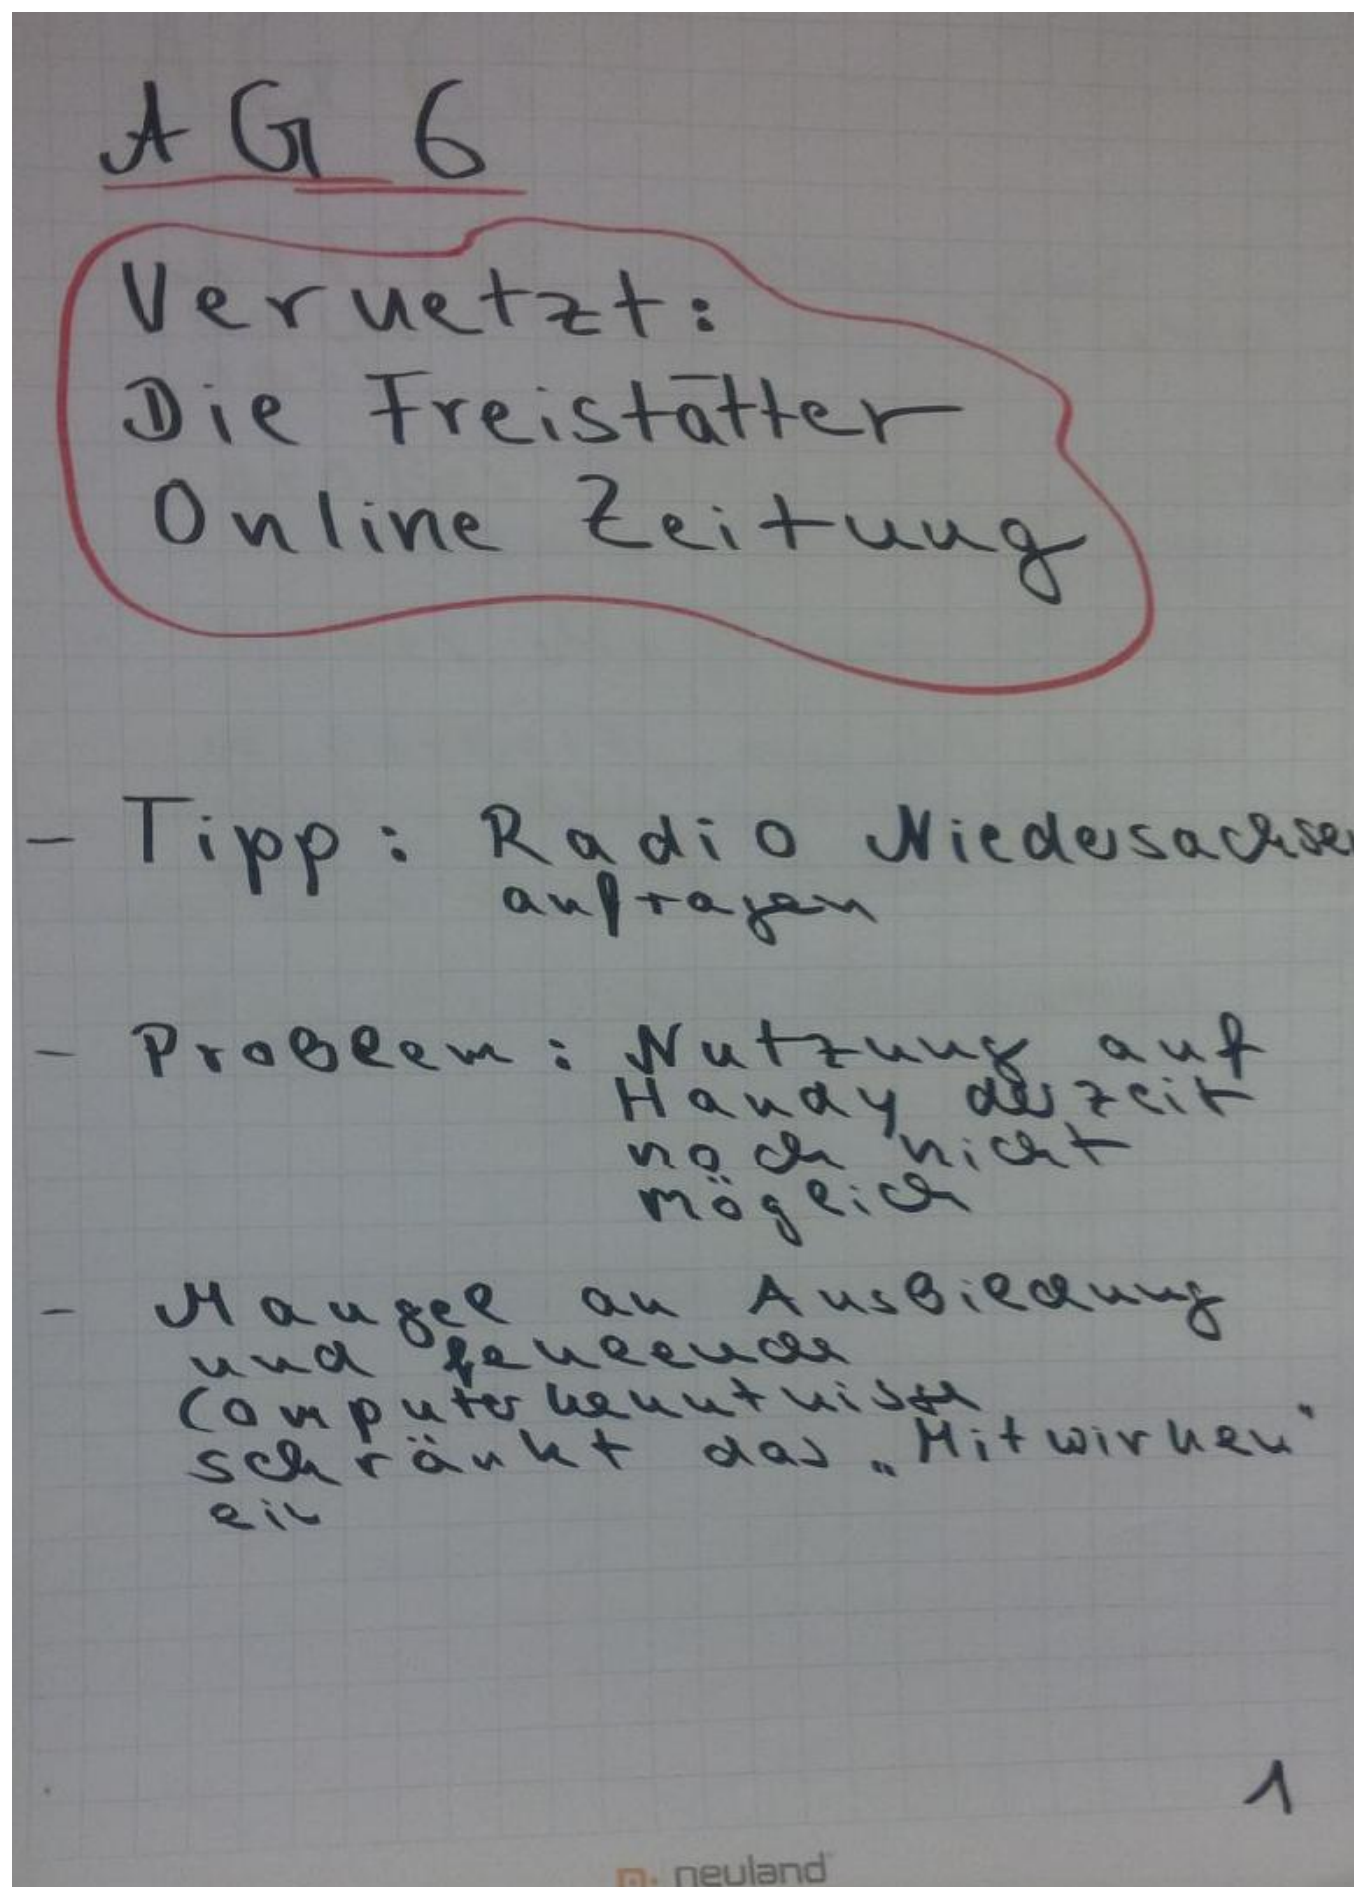 AG 6
Vernetzt:
Die Freistätter
Online Zeitung
- Tipp: Radio Niedersachsen
anfragen
- Problem: Nutzung auf
Handy derzeit
noch nicht
möglich
- Mangel an Ausbildung
und fehlende
Computerkenntnisse
schränkt das „Mitwirken"
ein
1
neuland